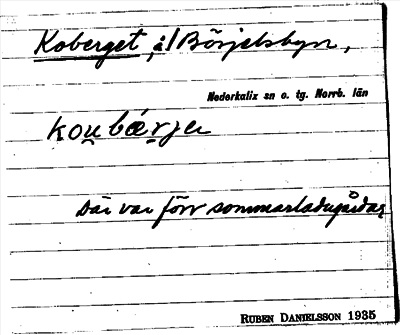 Koberget, å/ Börjelsbyn,
Nederkalix sn o. tg. Norrb. län
kou̯bǽrje
Där var förr sommarladugårdar
RUBEN DANIELSSON 1935